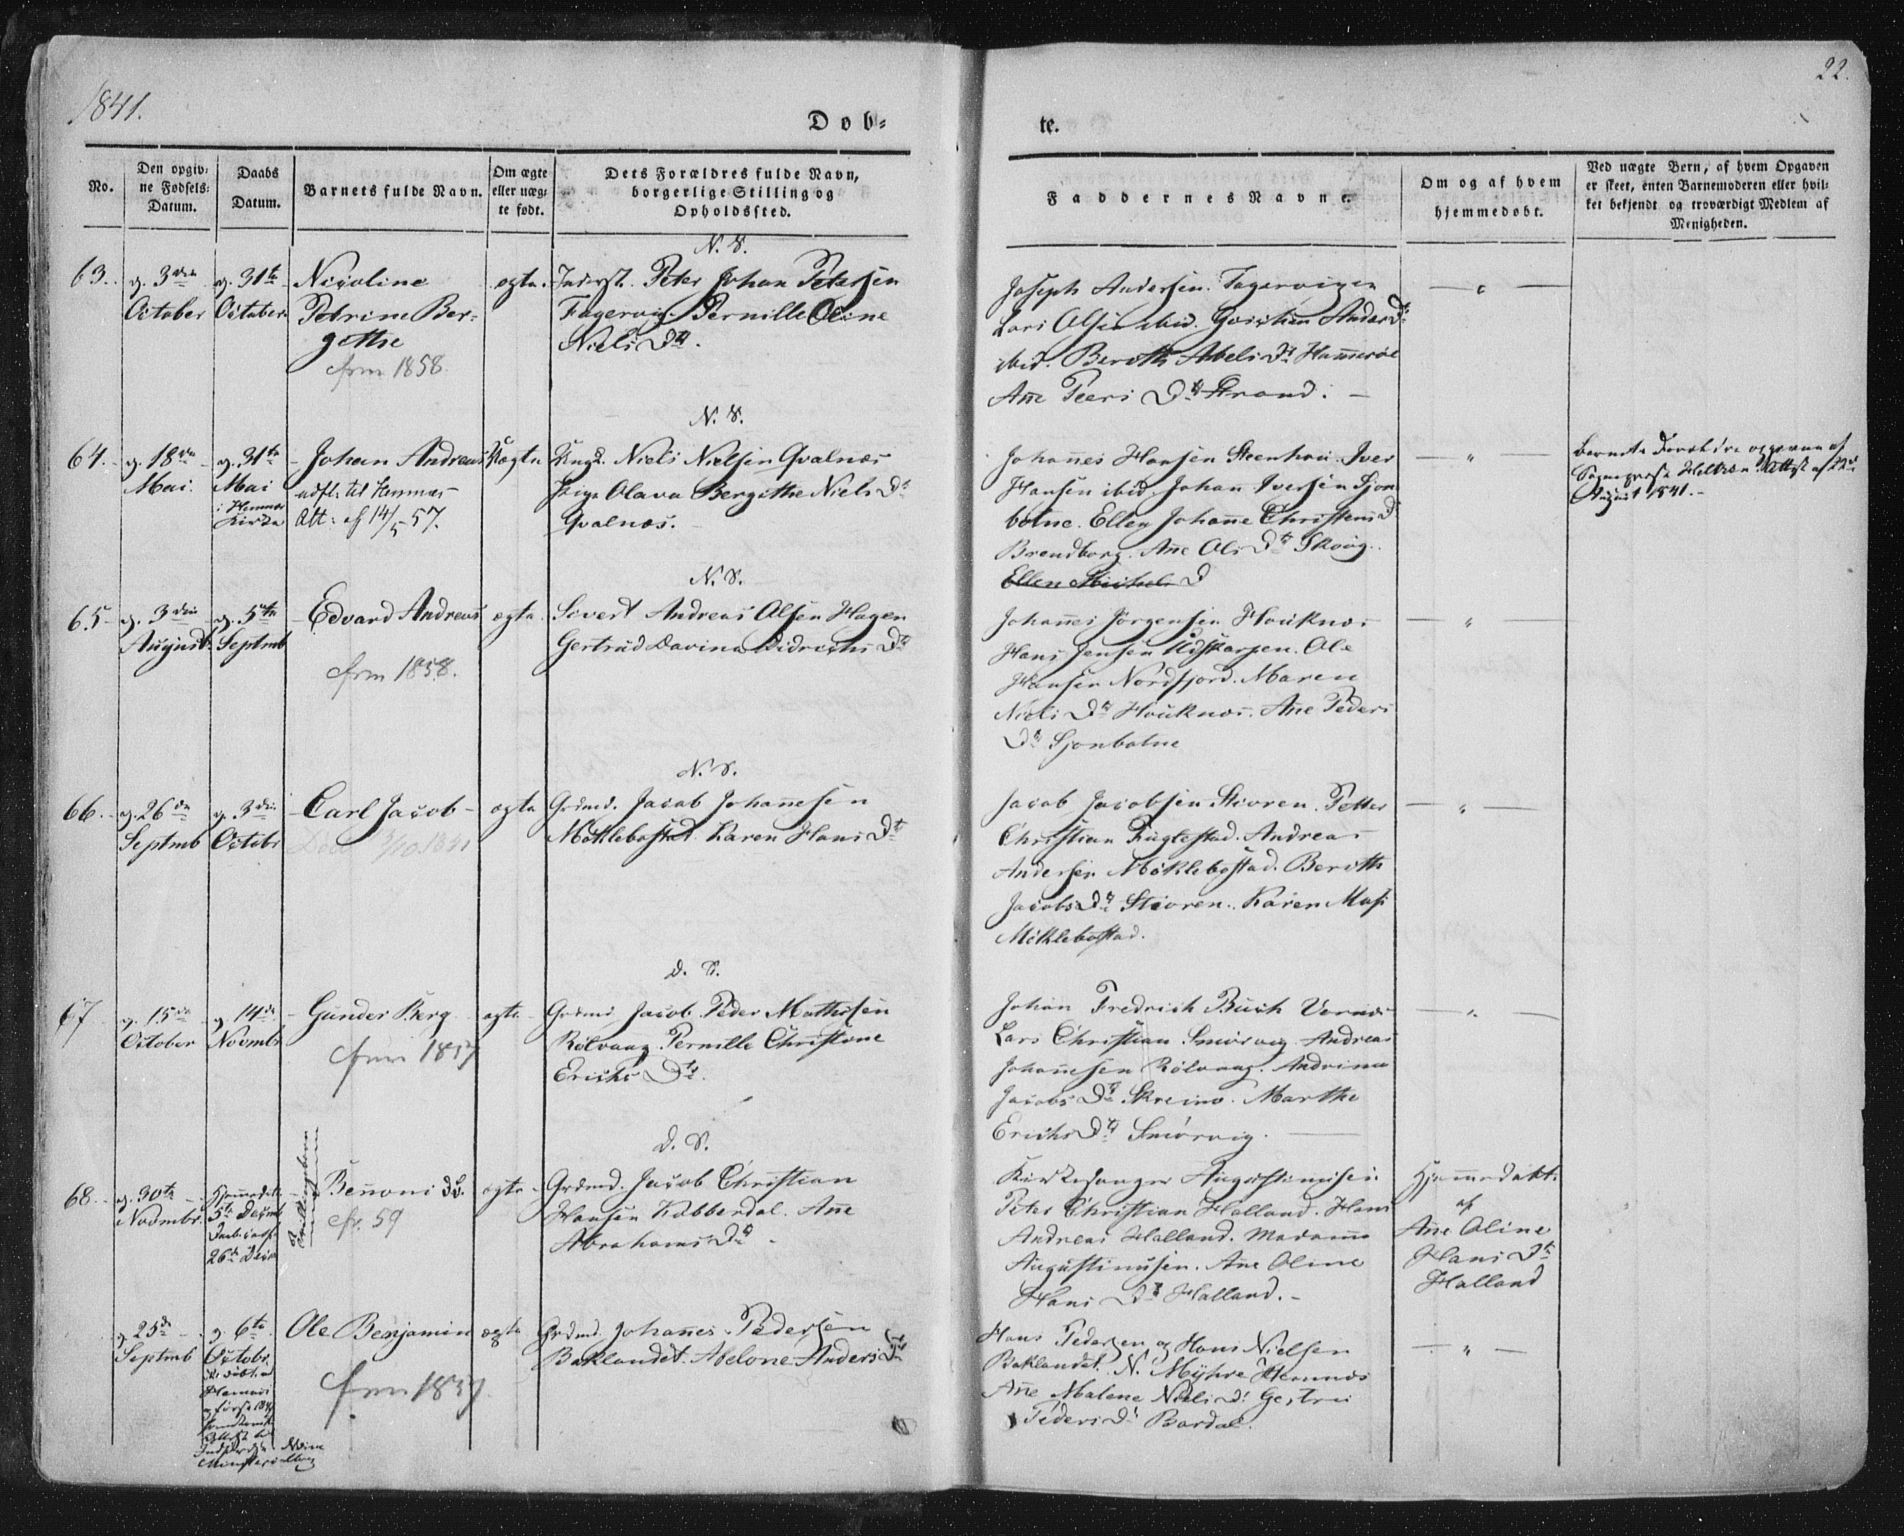 1841.
22.
Dob-
te.
No.
Den opgiv-
ne Fødsels-
Datum.
Daabs
Datum.
Barnets fulde Navn.
Om ægte
eller uæg-
te født.
Dets Forældres fulde Navn,
borgerlige Stilling og
Opholdssted.
Faddernes Navne.
Om og af hvem
hjemmedøbt.
Ved uægte Børn, af hvem Opgaven
er skeet, enten Barnemoderen eller hvil-
ket bekjendt og troværdigt Medlem af
Menigheden.
N. S.
63.
d. 3die
October
d. 31te
October
Nicoline
Petrine Ber-
gethe
cfrm 1858.
ægte.
Inderst. Peter Johan Petersen
Fagervig. Pernille Oline
Niels Dtr.
Joseph Andersen Fagervigen
Lars Olsen ibid. Anders Dr
ibid. Bereth Abels Dr Hammerøe
Ane Peers Dtr Strand.
N. S.
64.
d. 18de
Mai.
d. 31te
Mai
i Hemnes
Kirke
Johan Andreas
udfl: til Hemnæs
Att: af 14/5 57.
Uægte
Ungk. Niels Nielsen Qvalnæs
Pige Olava Bergithe Niels Dr
Qvalnæs.
Johannes Hansen Steenhau. Iver
Hansen ibid. Johan Iversen Sjon
botne. Ellen Johanne Christens D
Brendborg. Ane Ols Dtr Skoug.
Ellen D
August 1841.
N. S.
65
d. 3die
August
d. 5te
Septmb
Edvard Andreas
cfrm 1858.
ægte
Sivert Andreas Olsen Hagen
Gertrud Davina Didrichs Dtr
Johannes Jørgensen Houknæs
Hans Jensen Ole
Hansen Nordfjord. Maren
Niels Dtr Houknæs. Ane Peders
Dtr Sjonbotne
N. S.
66.
d. 26de
Septmb
d. 3die
Octobr
Carl Jacob
ægte
Grdmd. Jacob Johannesen
Møklebostad. Karen Hans Dtr
Jacob Jacobsen Stivren. Petter
Christian Fuglestad. Andreas
Andersen Møklebostad. Bereth
Jacobs Dtr Stivren. Karen
Møklebostad.
D. S.
67
d. 15de
October
d. 14de
Novmbr
Gunder Berg
cfrm 1857
ægte
Grdmd Jacob Peder Mathisen
Rølvaag Pernille Christone
Erichs Dtr.
Johan Fredrich Buch Vernæs
Lars Christian Smørvig Andreas
Johannesen Rølvaag. Andrina
Jacobs Dtr Skreino. Marthe
Erichs Dtr Smørvig.
D. S.
68.
d. 30te
Novmbr.
Hjemmedøbt
5te Decmb
26de Decr
Tvillingebørn
Benoni
cfr. 59
ægte
Grdmd. Jacob Christian
Hansen Kobberdal. Ane
Abrahams Dtr
Kirkesanger Augustinusen
Peter Christian Halland. Hans
Andreas Halland. Madamme
Augustinusen. Ane Oline
Hans Dtr Halland.
Hjemmedøbt
af
Ane Oline
Hans Dtr
Halland
d. 25de
Septmb
d. 6te
Octobr
Ole Benjamin
cfrm 1857
ægte
Grdmd. Johannes Pedersen
Baklandet. Abelone Anders Dr
Hans Pedersen og Hans Nielsen
Baklandet. N. Myhre Hemnæs
Ane Malene Niels Dr
Peders Dr Bardal.